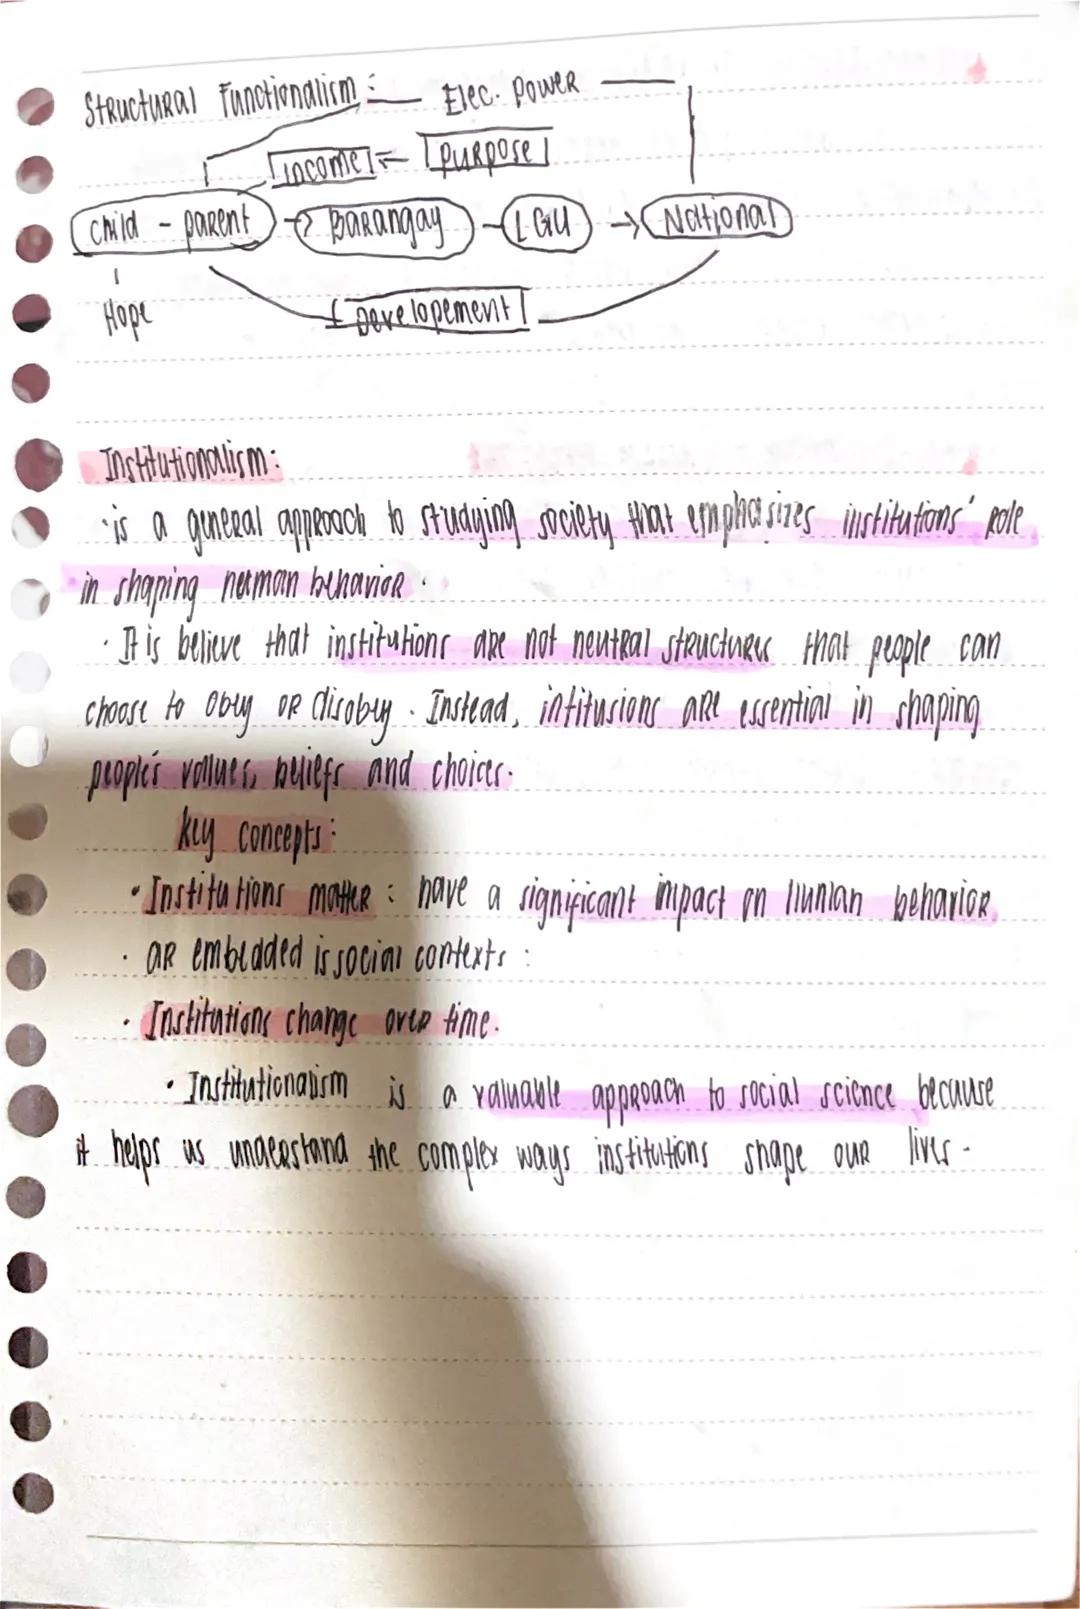 Structural Functionalism: Elec. Power
income purpose
child - parent Barangay LGU National
Hope Developement
Institutionalism:
· is a general approach to studying society that emphasizes institutions' role
in shaping human behavior.
· It is believe that institutions are not neutral structures that people can
choose to obey or disobey. Instead, intitusions are essential in shaping
people's values, beliefs and choices.
key concepts:
· Institutions matter : have a significant impact on Human behavior.
· ar embedded is social contexts :
· Institutions change over time.
· Institutionalism is a valuable approach to social science because
it helps us understand the complex ways institutions shape our lives.